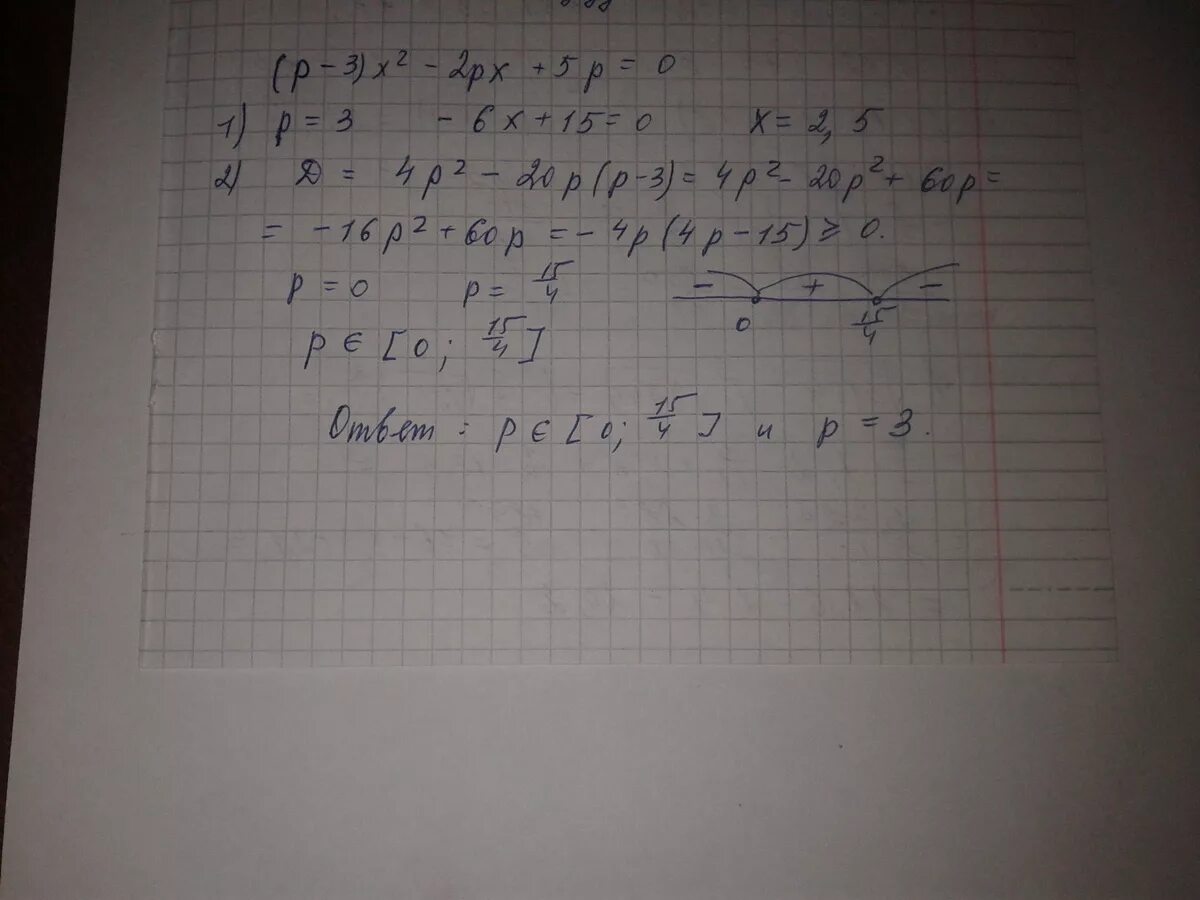 (p - 3)x² - 2px + 5p = 0
1) p = 3 - 6x + 15 = 0 x = 2,5
2) D = 4p² - 20p(p-3) = 4p² - 20p² + 60p =
= -16p² + 60p = -4p(4p - 15) ≥ 0.
p = 0 p = 15/4 - + -
0 15/4
p ∈ [0; 15/4]
Ответ: p ∈ [0; 15/4] и p = 3.